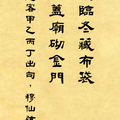 臨冬藏布袋
蓋廟砌金門
客甲乙丙丁出句，穆仙